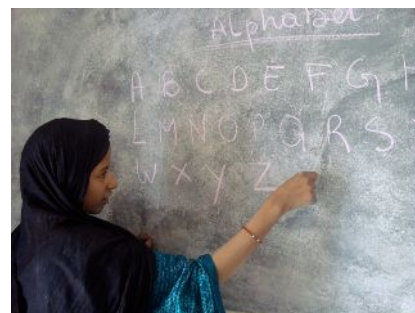 Alphabet.
A B C D E F G H
L M N O P Q R S
W X Y Z